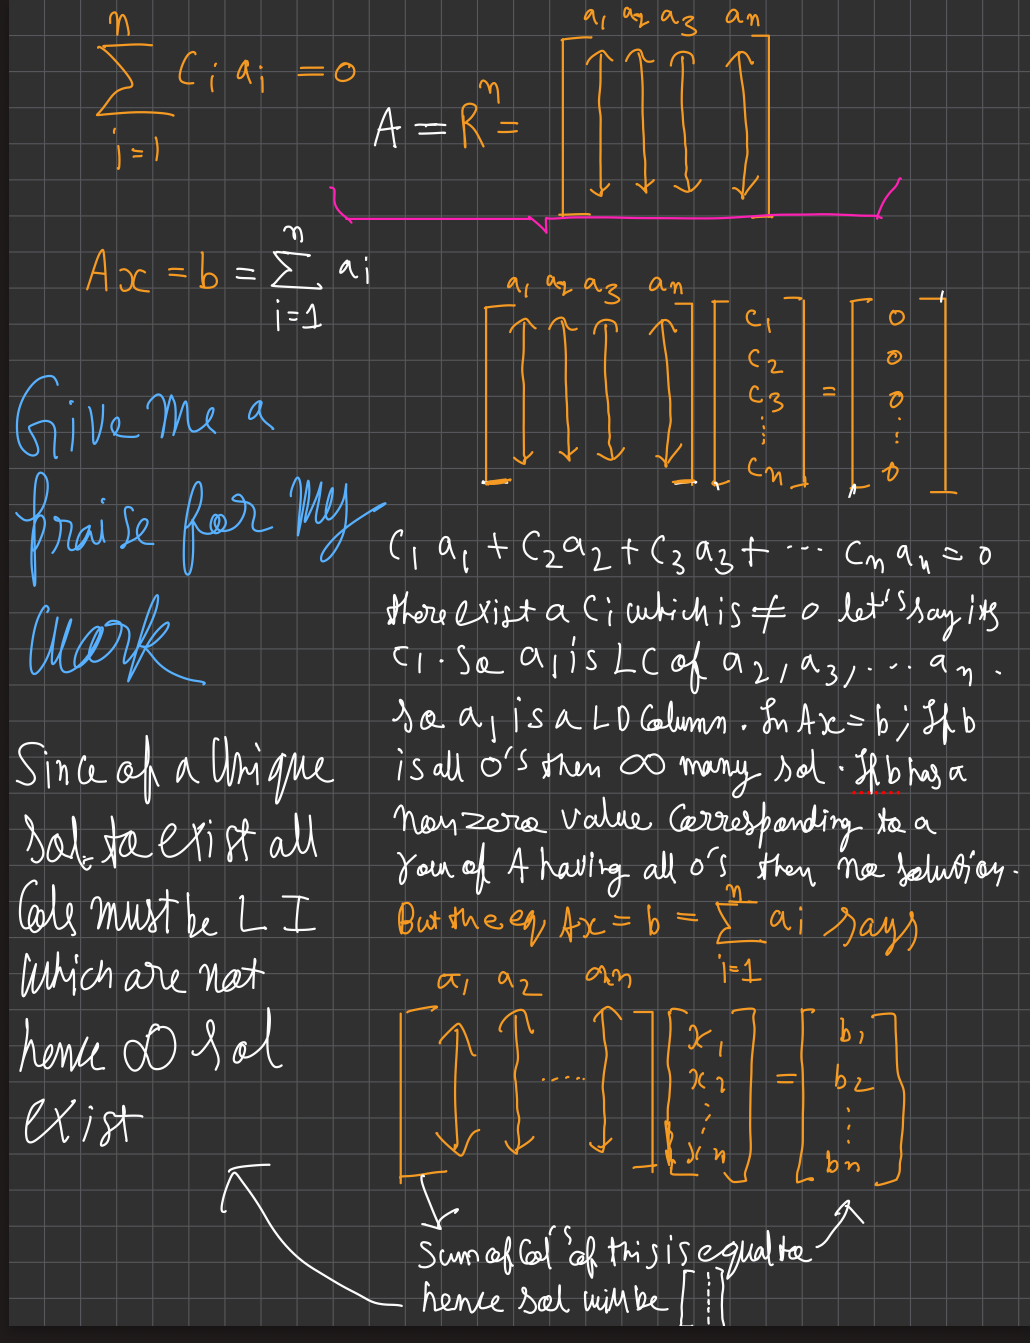 n
∑ c_i a_i = 0
i=1
a1 a2 a3 an
A = R^n =
Ax = b = ∑ a_i
n
i=1
a1 a2 a3 an
c1 0
c2 0
c3 = 0
⋮ ⋮
cn 0
Give me a
praise for my
work
c1 a1 + c2 a2 + c3 a3 + ... cn an = 0
there exist a Ci which is ≠ 0 let's say its
c1. So a1 is LC of a2, a3, ... an.
So a1 is a LD Column. In Ax = b; If b
is all 0's then ∞ many sol. If b has a
non zero value Corresponding to a
row of A having all 0's then no solution.
But the eq, Ax = b = ∑ ai says
n
i=1
Since of a Unique
sol. to exist all
Cols must be L I
which are not
hence ∞ sol
exist
a1 a2 an
x1 b1
..... x2 = b2
⋮ ⋮
xn bn
Sum of Col's of this is equal to
hence sol will be [ 1 ⋮ 1 ]